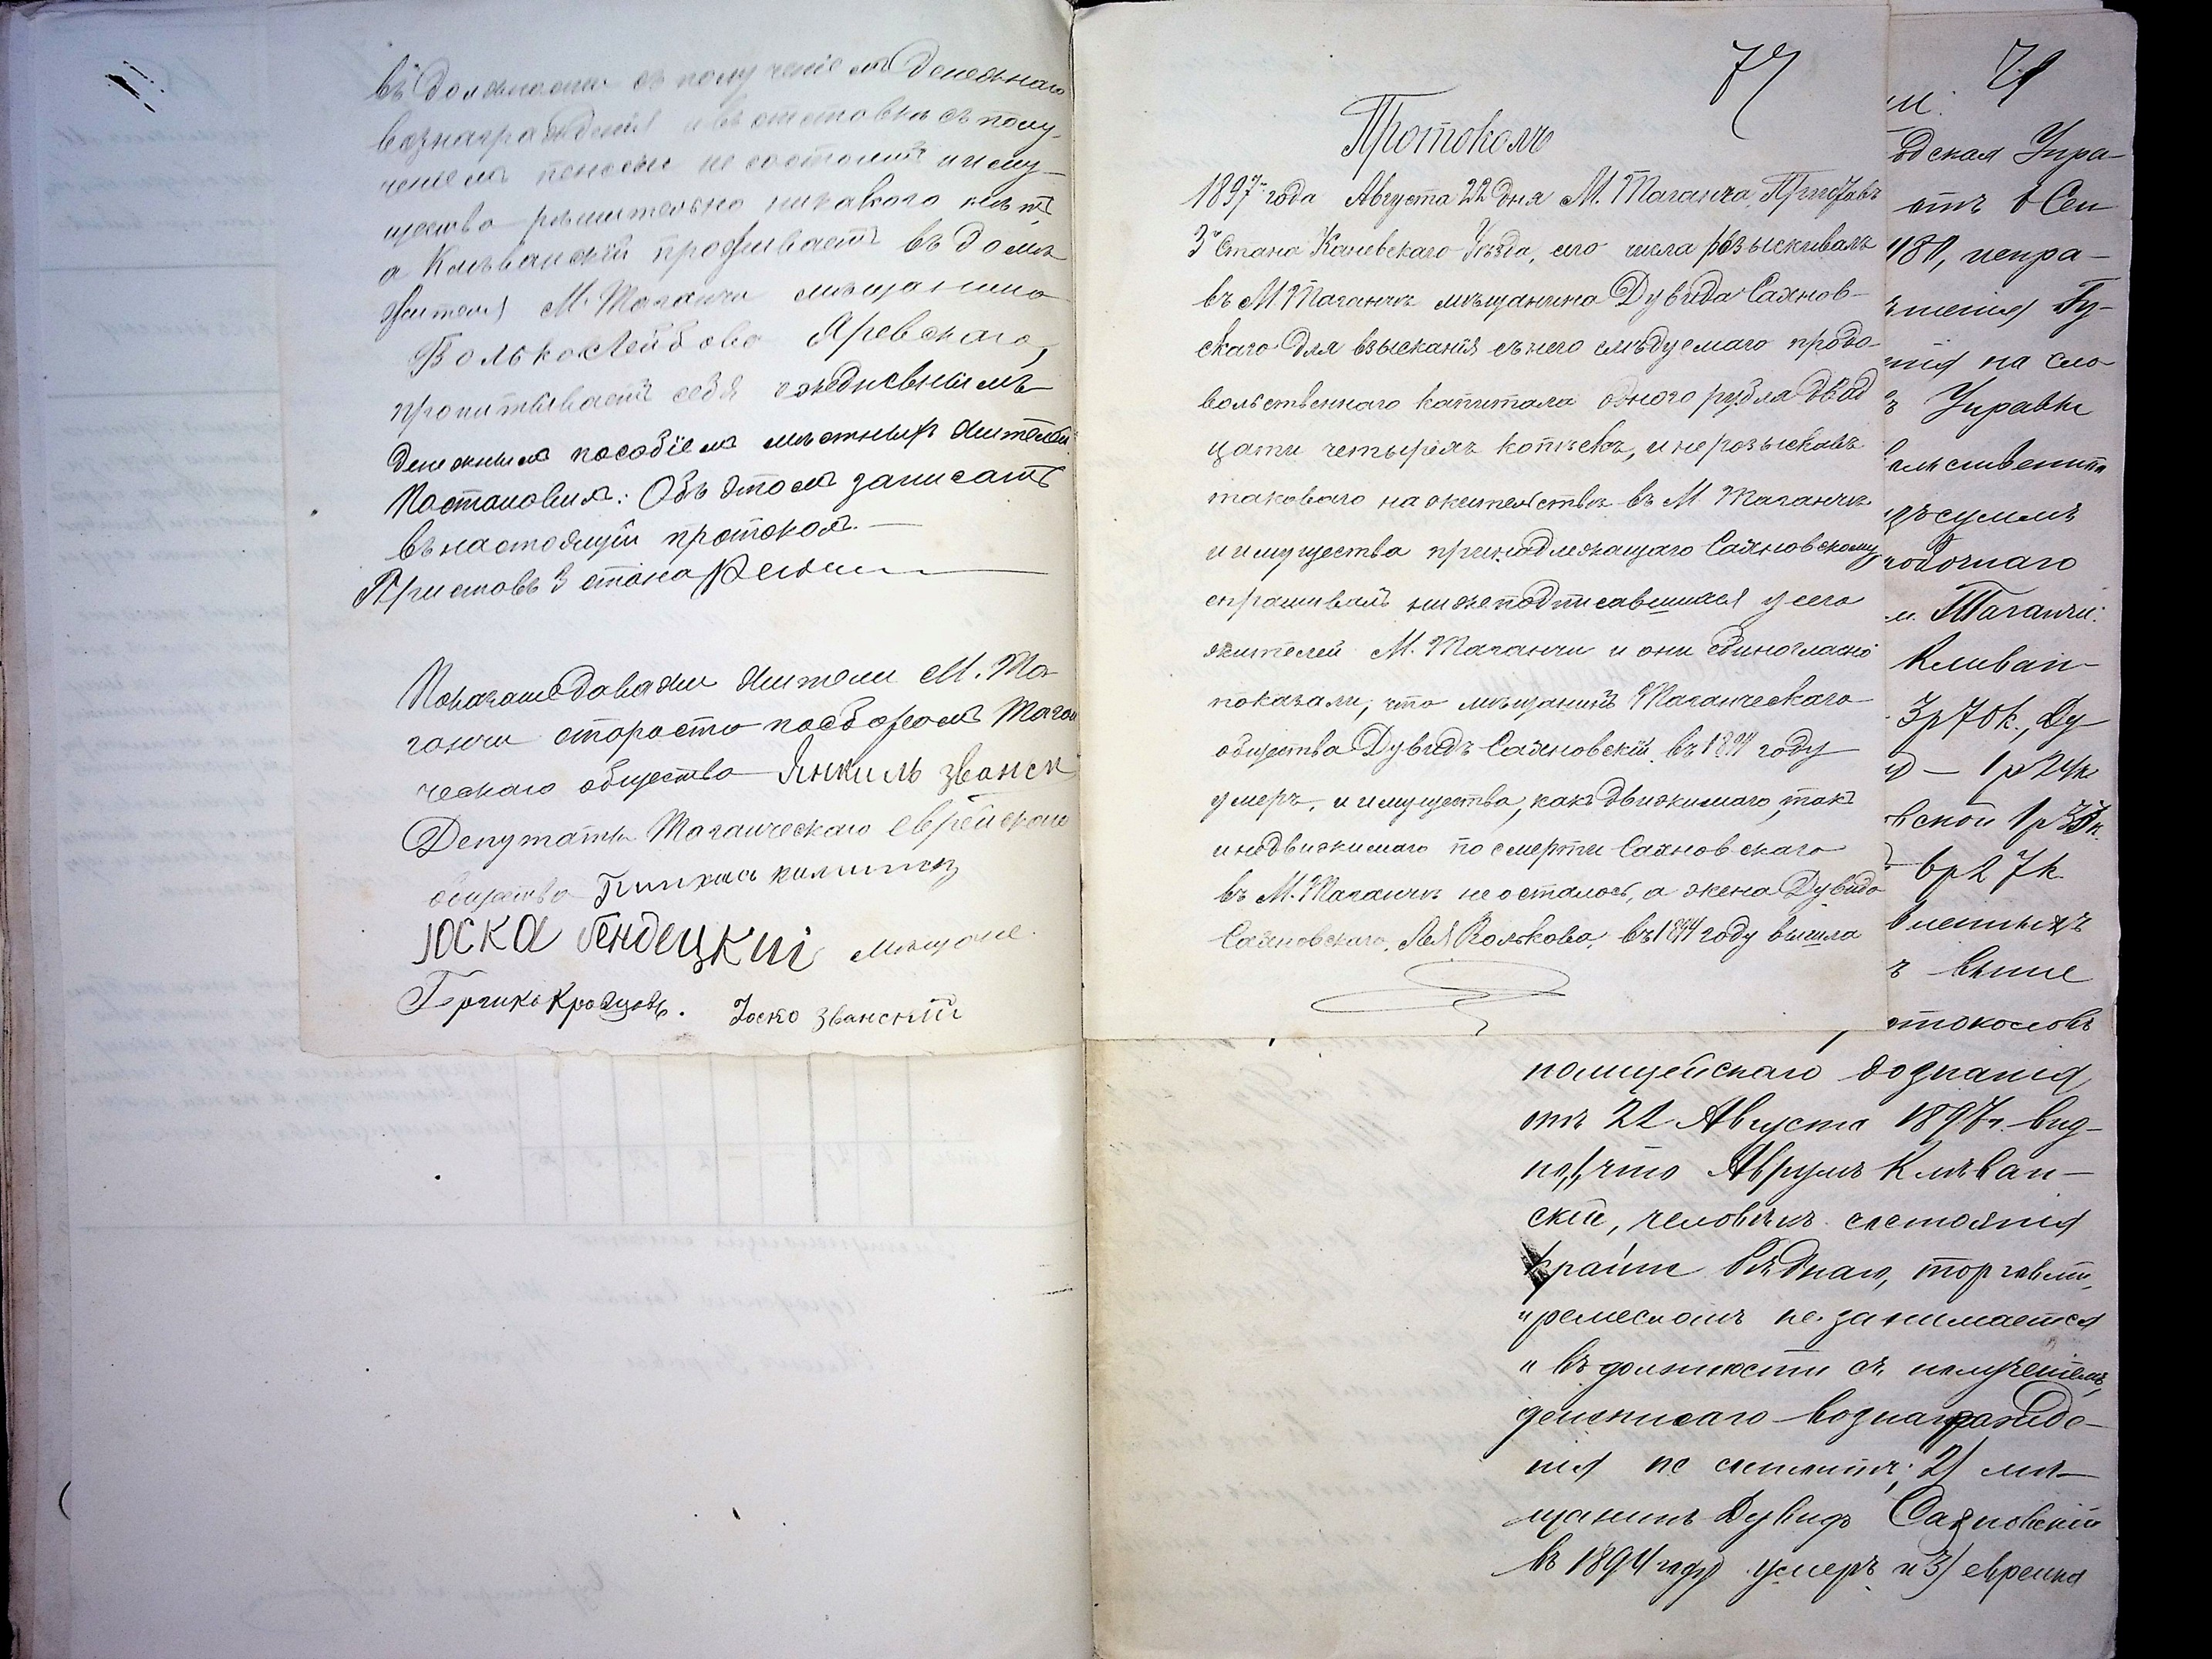 въ должности съ полученіемъ денежнаго
вознагражденія и въ отставкѣ съ полу-
ченіемъ пенсіи не состоитъ имму-
щества рѣшительно никакого нѣтъ
а Клѣванскій проживаетъ въ домѣ
жителя М. Таганчи мѣщанина
Волько Лейбова Яревскаго,
пропитываетъ себя ежедневнымъ
денежнымъ пособіемъ мѣстныхъ жителей.
Постановилъ: Объ этомъ записать
въ настоящій протоколъ.—
Приставъ 3 стана
жители М. Та-
ганчи староста по сборамъ Таган
ческаго общества Янкиль званск
Депутаты Таганческаго еврейскаго
общества Пинхась
Юска Гендецкиі мѣщане.
Гершко Кравцовъ. Іоско званскій
77
Протоколъ
1897 года Августа 22 дня М. Таганча, Приставъ
3 Стана Каневскаго Уѣзда, сего числа розыскивалъ
въ М Таганчѣ мѣщанина Дувида Саяновъ-
скаго для взысканія съ него слѣдуемаго продо-
вольственнаго капитала одного рубля двад
цати четырехъ копѣекъ, и не розыскавъ
таковаго на жительствѣ въ М. Таганчѣ
и имущества принадлежащаго Саяновскому,
спрашивалъ нижеподписавшихся у сего
жителей М. Таганчи и они единогласно
показали, что мѣщанинъ Таганческаго
общества Дувидъ Саяновскій въ 1894 году
умеръ, и имущества, какъ движимаго, такъ
и недвижимаго по смерти Саяновскаго
въ М. Таганчѣ не осталось, а жена Дувида
Саяновскаго, Лея Волькова, въ 1894 году вышла
79
дская Упра-
отъ 6 Сен
481, испра-
Гу-
на сло
Управы
суммъ
м. Таганчи:
Кливан-
3р 70к., Ду
— 1р 24к
вской 1р 33к.
— 6р 27к
выше
отоколовъ
полицейскаго дознанія
отъ 22 Августа 1897г. вид-
но, что Аврумъ Клѣван-
скій, человѣкъ состоянія
крайне бѣднаго, торговлей,
и ремесломъ не занимается
и въ должности съ полученіемъ
денежнаго вознагражде-
нія не состоитъ; 2) мѣ-
щанинъ Дувидъ Саяновскій
въ 1894 году умеръ и 3) еврейка